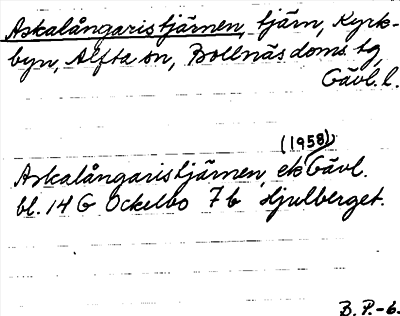 Askalångaristjärnen, tjärn, Kyrk-
byn, Alfta sn, Bollnäs doms. tg,
Gävl. l.
(1958)
Askalångaristjärnen ek Gävl.
bl. 14 G Ockelbo 7 b Hjulberget.
B. P.-6.